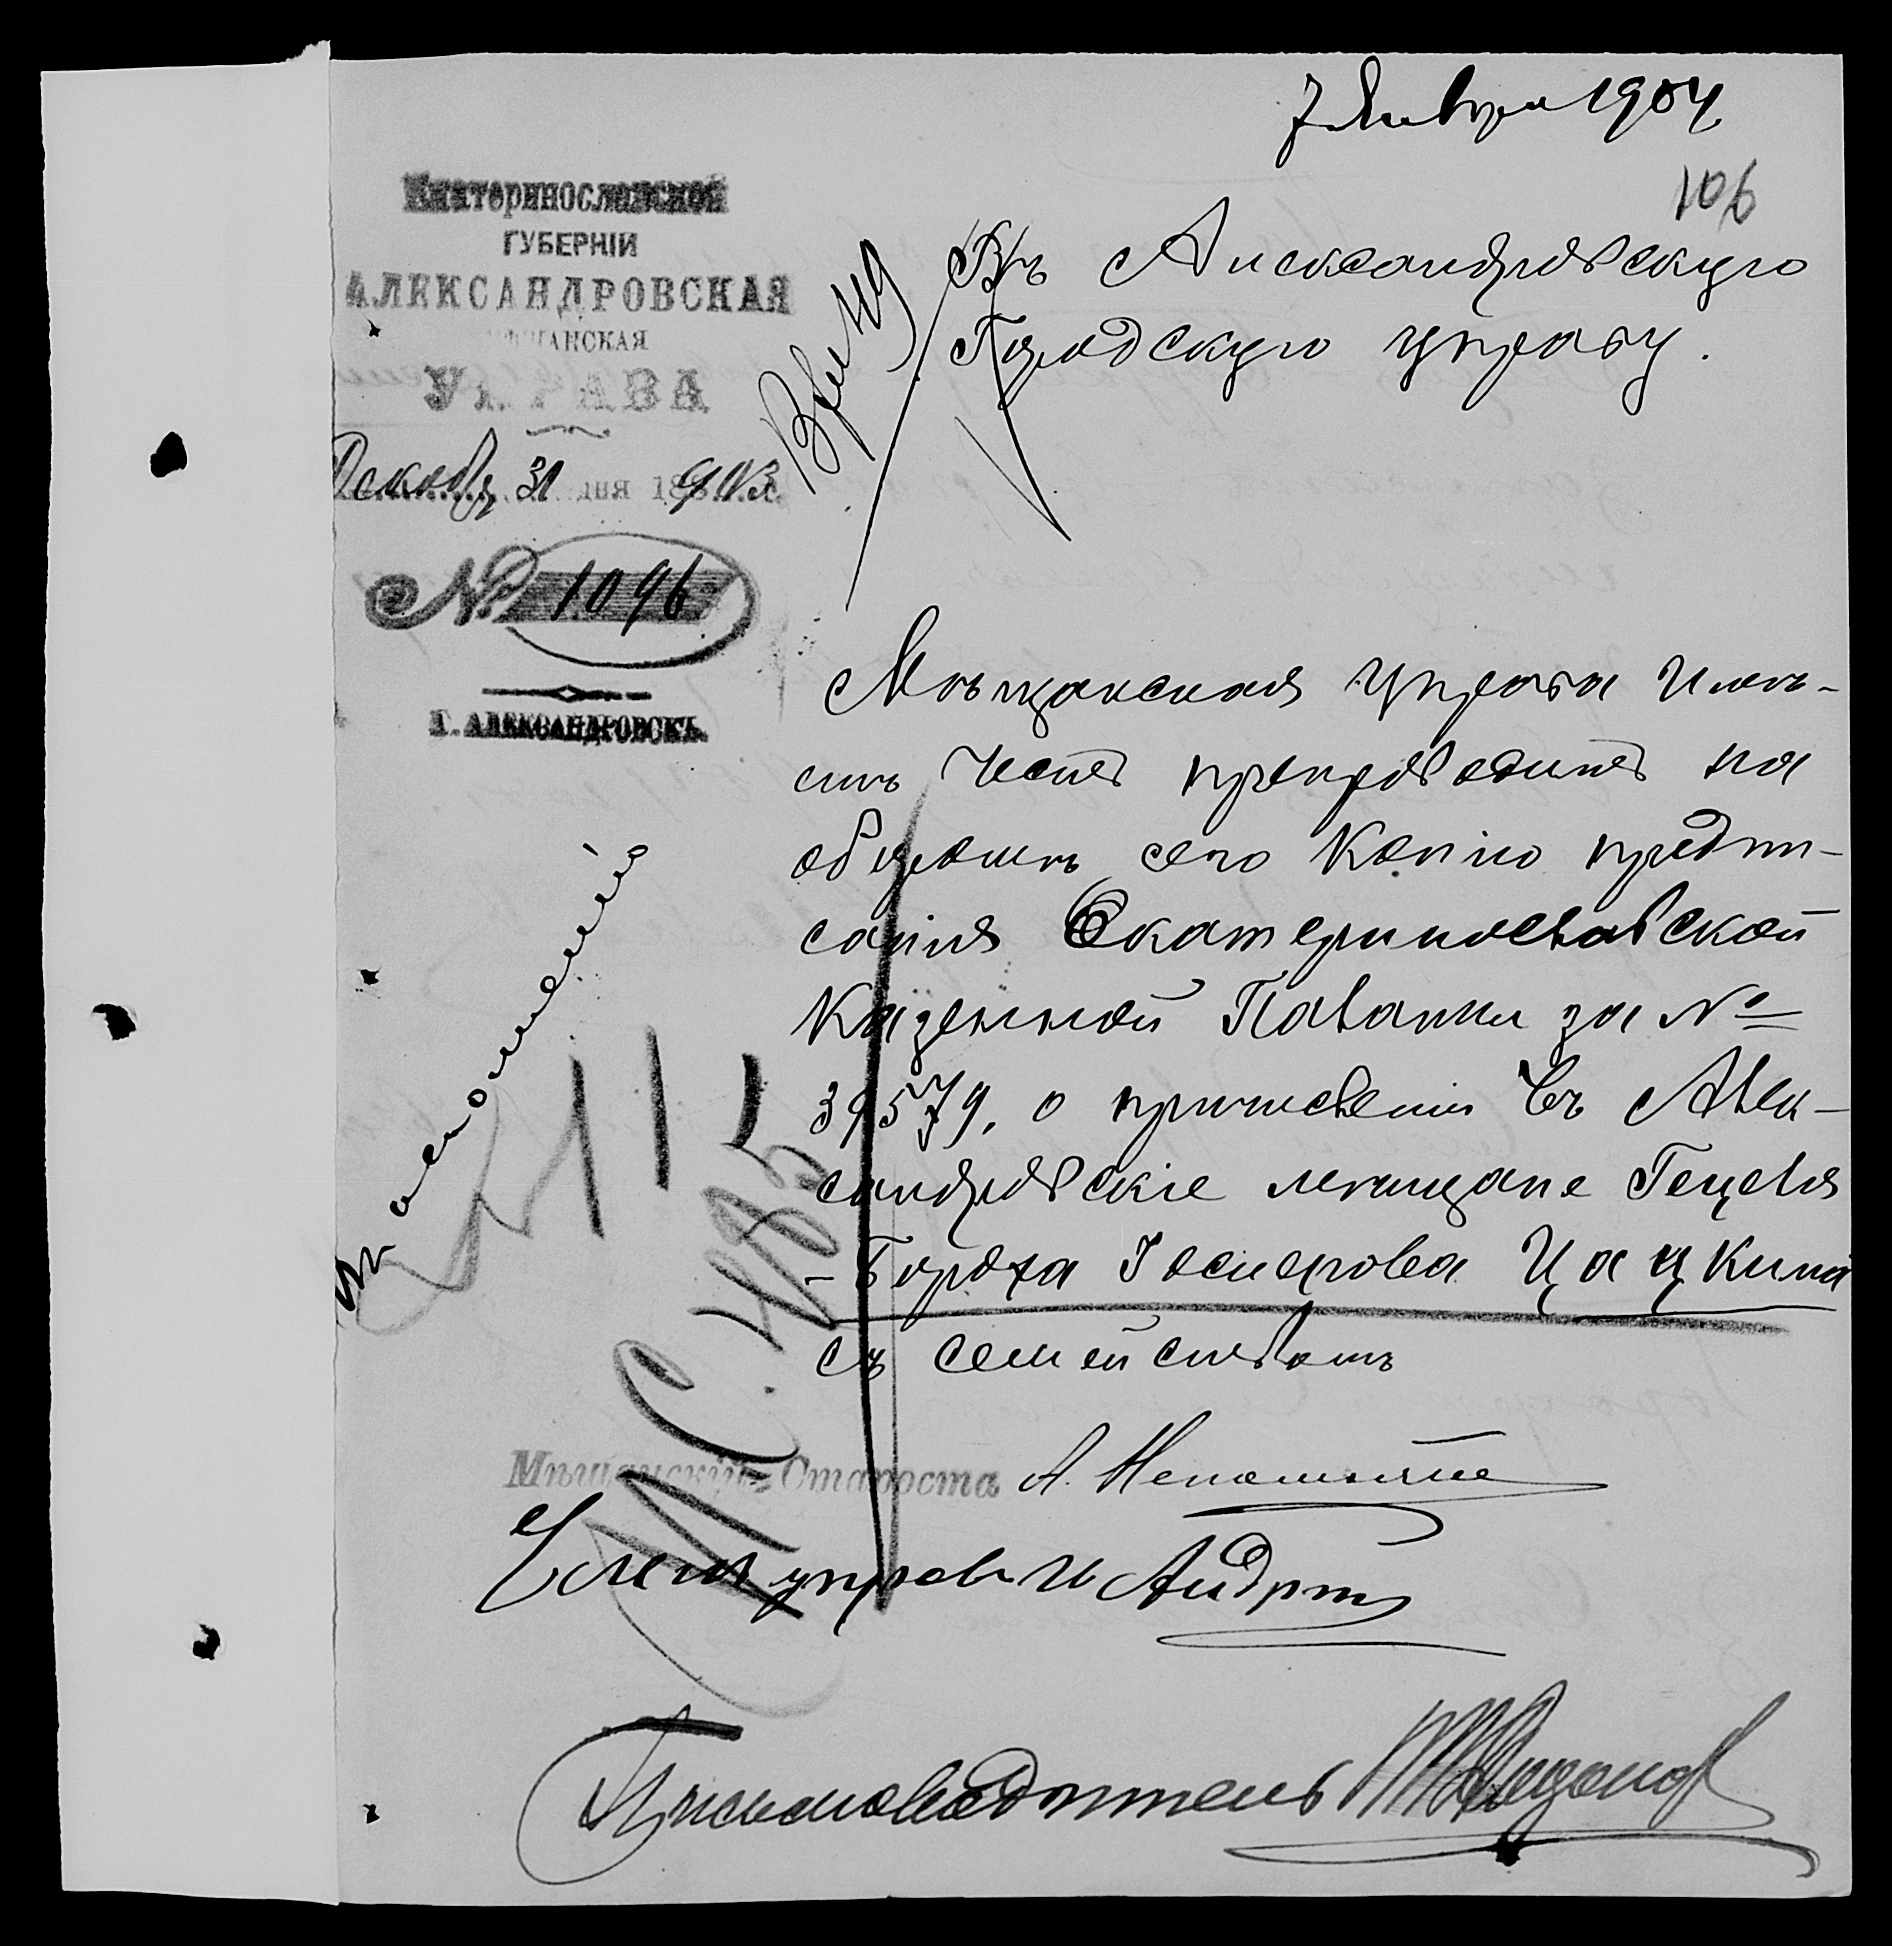 7 Января 1904
106
Екатеринославской
ГУБЕРНІИ
АЛЕКСАНДРОВСКАЯ
МѢЩАНСКАЯ
УПРАВА
Декабр 31 дня 1903 г.
№ 1096
Г. АЛЕКСАНДРОВСКЪ.
Въ Александровскую
Городскую управу.
Мѣщанская управа имѣ-
етъ честь препроводить на
оборотѣ сего копію предпи-
санія Екатеринославской
Казенной Палаты за №
39579, о причисленіи въ Алек-
сандровскіе мѣщане Гецеля
-Бороха Іосиерова Цацкина
съ семействомъ
Мѣщанскій Староста А. Непомнящ
Членъ управы И Андр
Письмоводитель